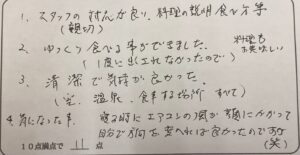 1. スタッフの対応が良い、料理の説明食べ方等
(親切)
2. ゆっくり食べる事ができました。 料理も
(1度に出てれなかったので) お美味しい
3. 清潔で気持が良かった。
(室、温泉、食事する場所 すべて)
4. 気になった事、 寝る時にエアコンの風が顔にかかって
自分で方向を変へれば良かったのですが
10点満点で 11 点 (笑)